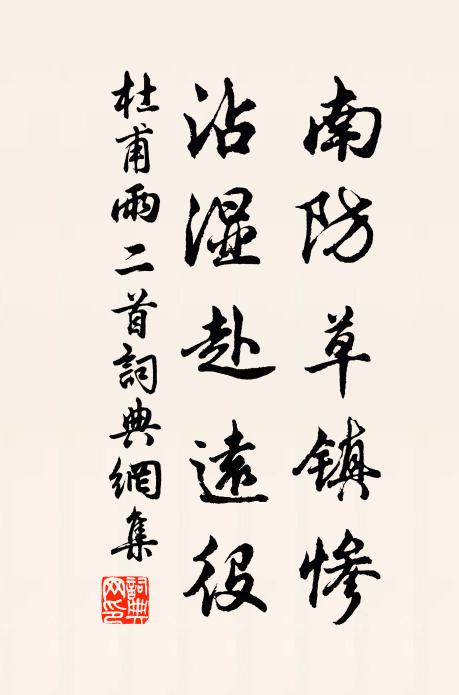 南防草镇惨
沾湿赴遠役
杜甫雨二首詞典網集
詞典網印